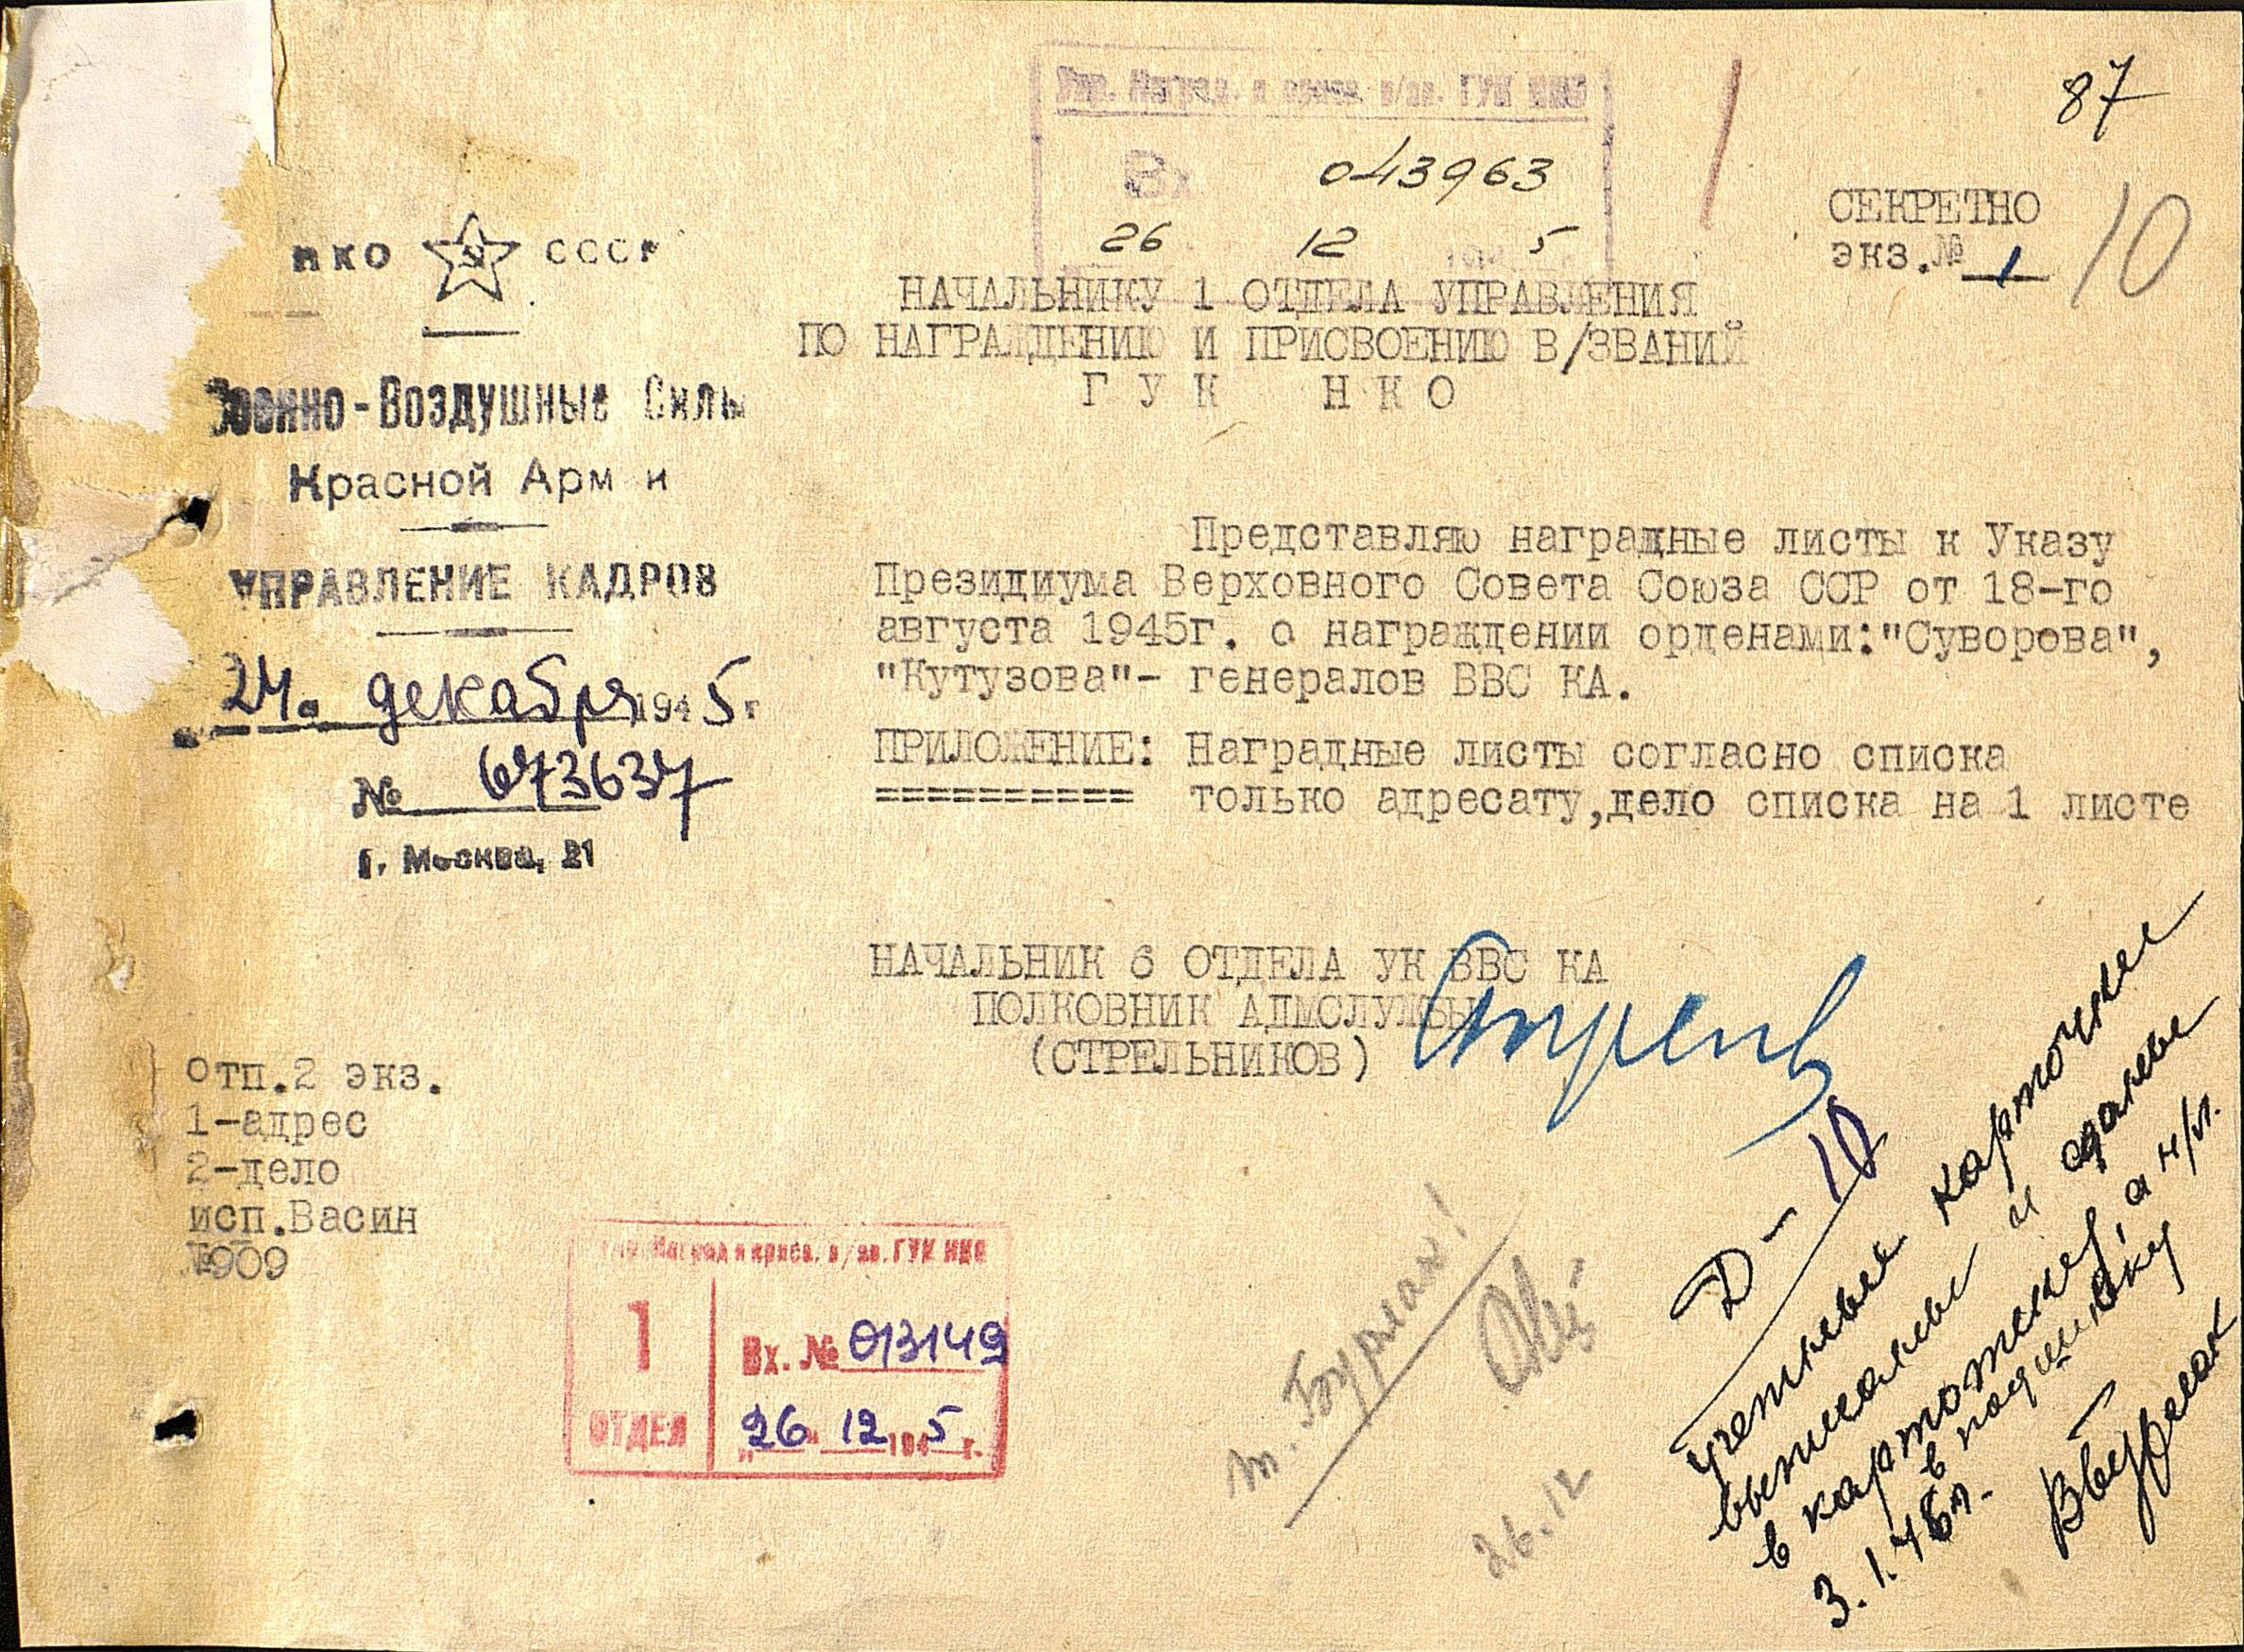 87
Упр. Наград. и присв. в/зв. ГУК НКО
Вх 043963
26 12 5
СЕКРЕТНО
экз.№ 1
10
НКО СССР
НАЧАЛЬНИКУ 1 ОТДЕЛА УПРАВЛЕНИЯ
ПО НАГРАЖДЕНИЮ И ПРИСВОЕНИЮ В/ЗВАНИЙ
ГУК НКО
Военно-Воздушные Силы
Красной Арм и
УПРАВЛЕНИЕ КАДРОВ
24. декабря 1945 г
№ 673637
г. Москва, 21
Представляю наградные листы к Указу
Президиума Верховного Совета Союза ССР от 18-го
августа 1945г. о награждении орденами:"Суворова",
"Кутузова"- генералов ВВС КА.
ПРИЛОЖЕНИЕ: Наградные листы согласно списка
========== только адресату,дело списка на 1 листе
НАЧАЛЬНИК 6 ОТДЕЛА УК ВВС КА
ПОЛКОВНИК АДМСЛУЖБЫ
(СТРЕЛЬНИКОВ)
отп.2 экз.
1-адрес
2-дело
исп.Васин
№909
Упр. Наград и присв. в/зв. ГУК НКО
1 ОТДЕЛ
Вх. № 013149
"26" 12 1945 г.
т. Бурлак!
26.12
Д-10
Учетные карточки
выписаны и сданы
в картотеку, а н/л.
в подшивку
3.1.46г.
ВБурлак